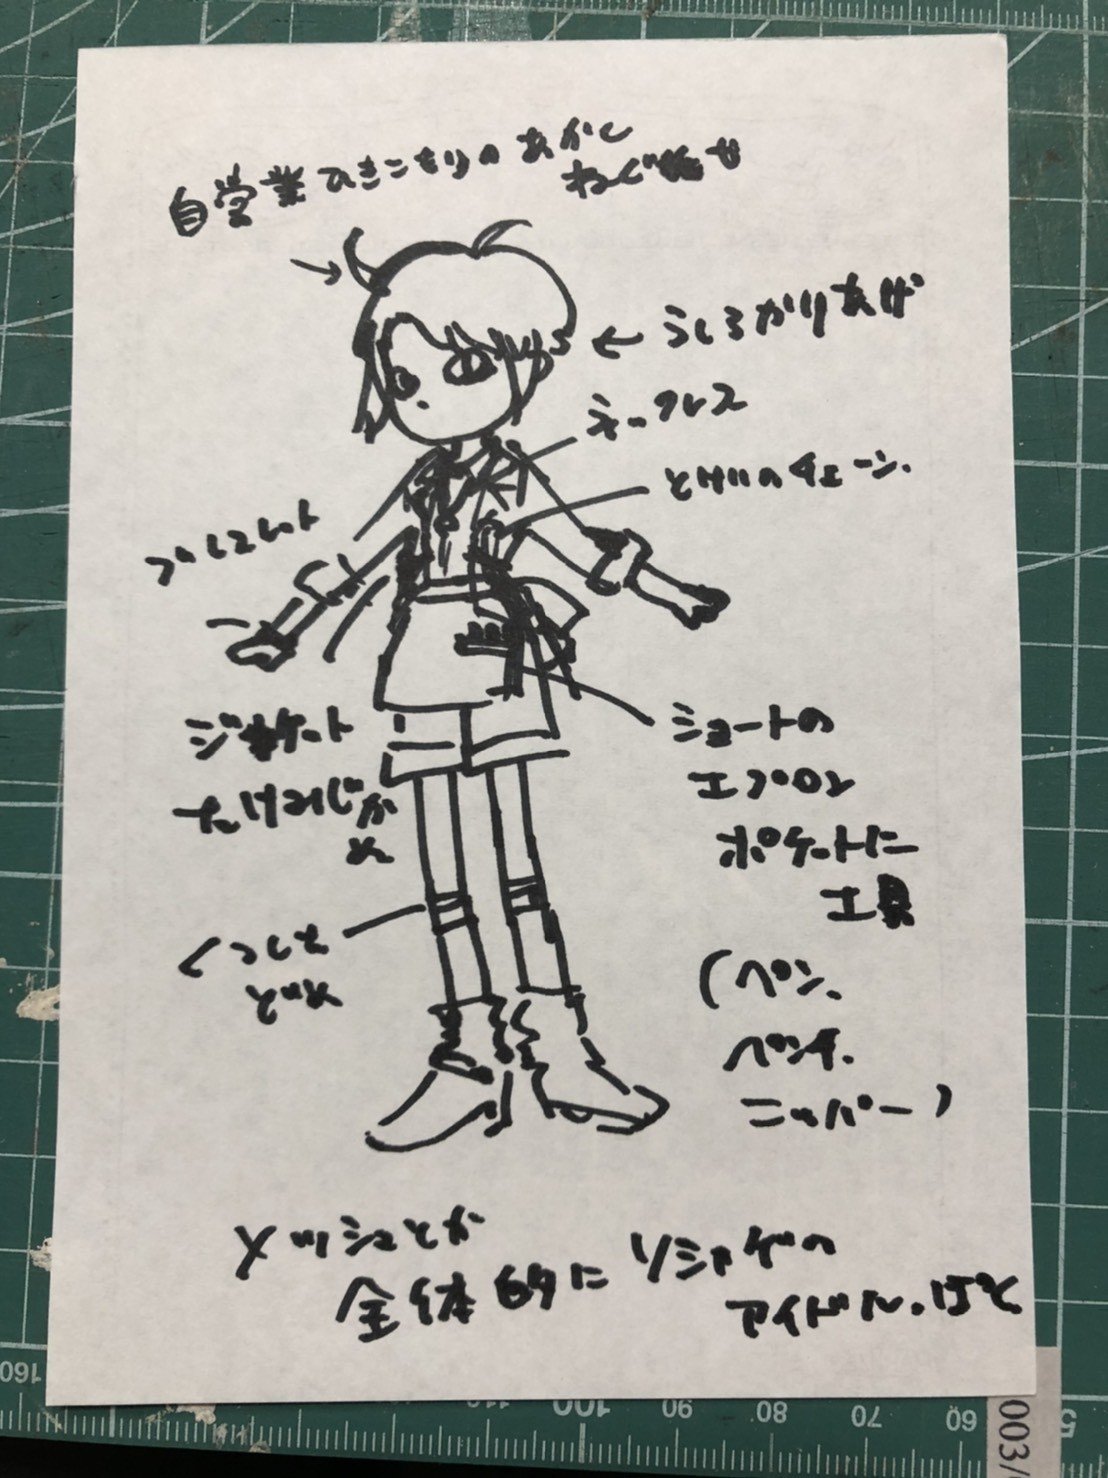 自営業ひきこもりのあかし
ねぐせ
うしろかりあげ
ネックレス
とけいのチェーン.
ブレスレット
ジャケット
たけみじか
め
ショートの
エプロン
ポケットに
工具
(ペン.
ペンチ.
ニッパー)
くつした
どめ
メッシュとか
全体的にソシャゲの
アイドルっぽく
160
100
90
80
70
60
5
003/